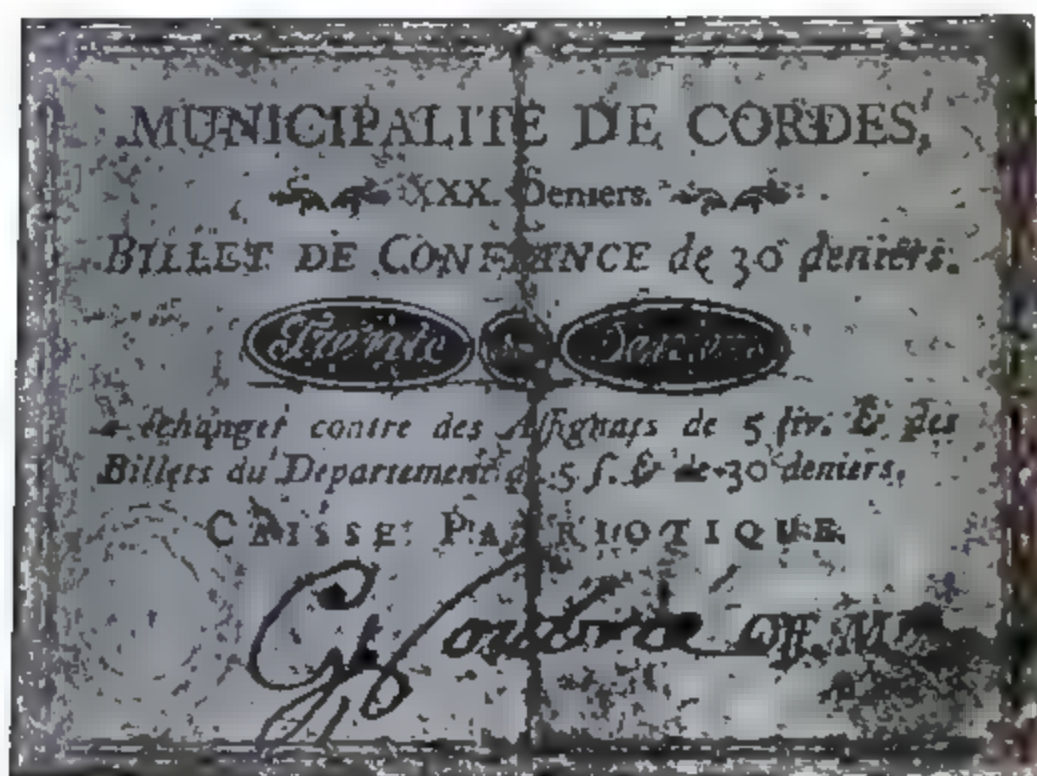 MUNICIPALITE DE CORDES,
XXX. Deniers.
BILLET DE CONFIANCE de 30 deniers.
Trente
à échanger contre des Assignats de 5 liv. & des
Billets du Departement de 5 s. & de 30 deniers.
CAISSE PATRIOTIQUE
Off. M.